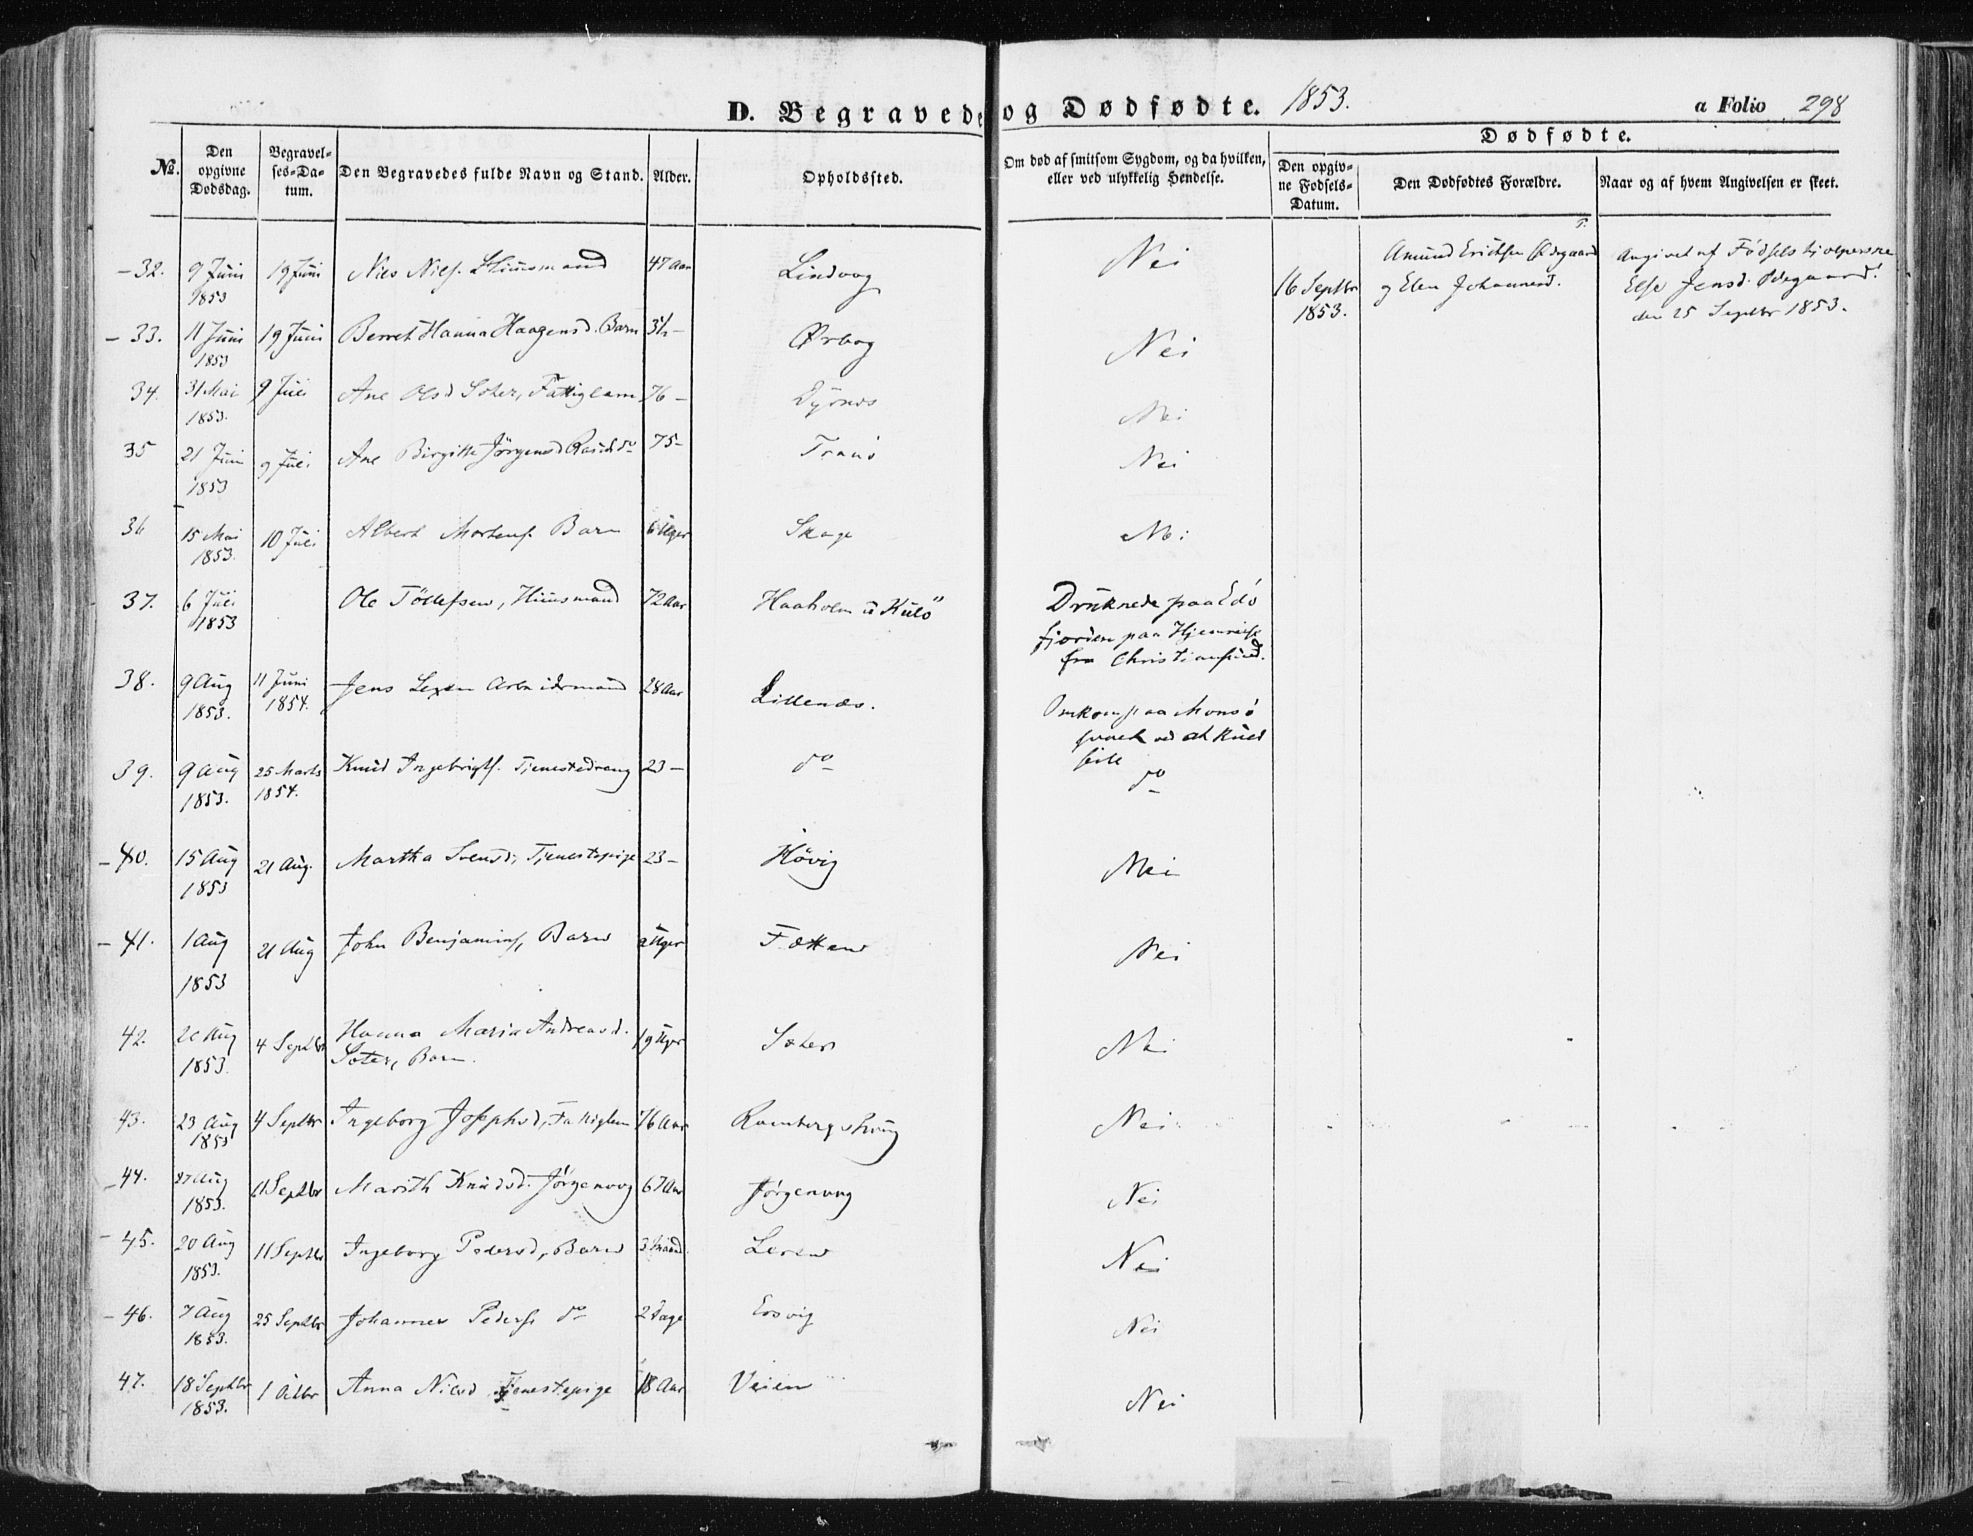 D. Begravede og Dødfødte. 1853. a Folio 298
No. Den opgivne Dødsdag. Begravelses-Datum. Den Begravedes fulde Navn og Stand. Alder. Opholdssted. Om død af smitsom Sygdom, og da hvilken, eller ved ulykkelig Hendelse.
Dødfødte.
Den opgivne Fødsels-Datum. Den Dødfødtes Forældre. Naar og af hvem Angivelsen er skeet.
32. 9 Juni 1853 19 Juni Niels Nielss. Huusmand 47 Aar Lindvog Nei
16 Septbr 1853. Amund Erichsen Ødegaard og Elen Johannesd. Angivet af Fødselshjelperske Else Jensd. Ødegaard den 25 Septbr 1853.
33. 11 Juni 1853 19 Juni Berret Hanna Haagensd. Barn Ørbog Nei
34. 31 Mai 1853. 9 Juli Ane Olsd Soter, Fattiglem 76 - Dyrnes Nei
35 21 Juni 1853 9 Juli Ane Birgitte Jørgensd do 75- Nei
36 15 Mai 1853. 10 Juli Albert Mortens. Barn 6 Uger Skage Nei
37. 6 Juli 1853 Ole Tøllefsen, Huusmand 72 Aar Haaholm u Kulø
Druknede paa Edø
fjorden paa Hjemreise
fra Christiansund.
38. 9 Aug 1853. 11 Juni 1854. Jens Arbeidsmand 28 Aar Lillenes.
Omkom paa
ved at Kuld
seile
39. 9 Aug 1853. 25 Marts 1854. Knud Ingebrigts. Tjenestedreng 23 - do do
40. 15 Aug 1853 21 Aug. Martha Svensd. Tjenestepige 23 - Høvig Nei
41. 1 Aug 1853 21 Aug John Benjamins, Barn 2 Uger Fætten Nei
42. 20 Aug 1853. 4 Septbr Hanna Maria Andreasd. Soter, Barn. 19 Uger Soter Nei
43. 23 Aug 1853 4 Septbr Ingeborg Josephsd, Fattiglem 76 Aar Nei
44. 27 Aug 1853. 11 Septbr Marith Knudsd. Jørgenvog 67 Aar Jørgenvog Nei
45. 20 Aug 1853. 11 Septbr Ingeborg Pedersd, Barn 3 Maand. Leren Nei
46. 7 Aug 1853. 25 Septbr Johannes Peders. do 2 Dage Nei
47. 18 Septbr 1853. 1 Octbr Anna Nielsd Tjenestepige 18 Aar Veien Nei